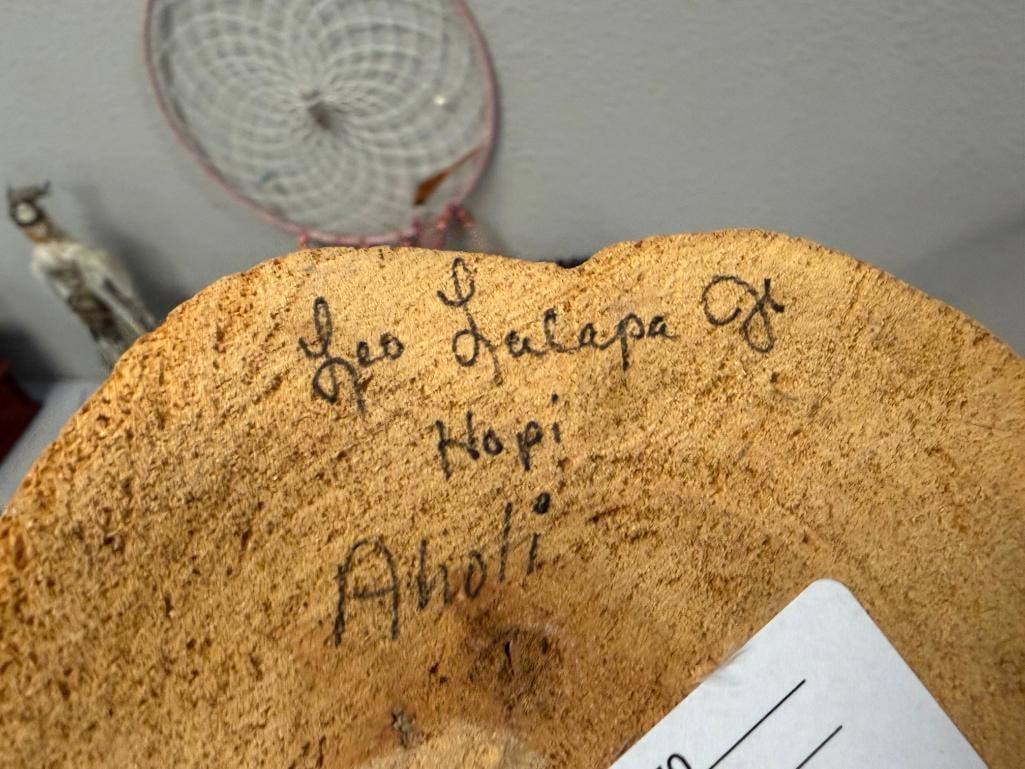 Leo Lacapa Jr
Hopi
Aholi